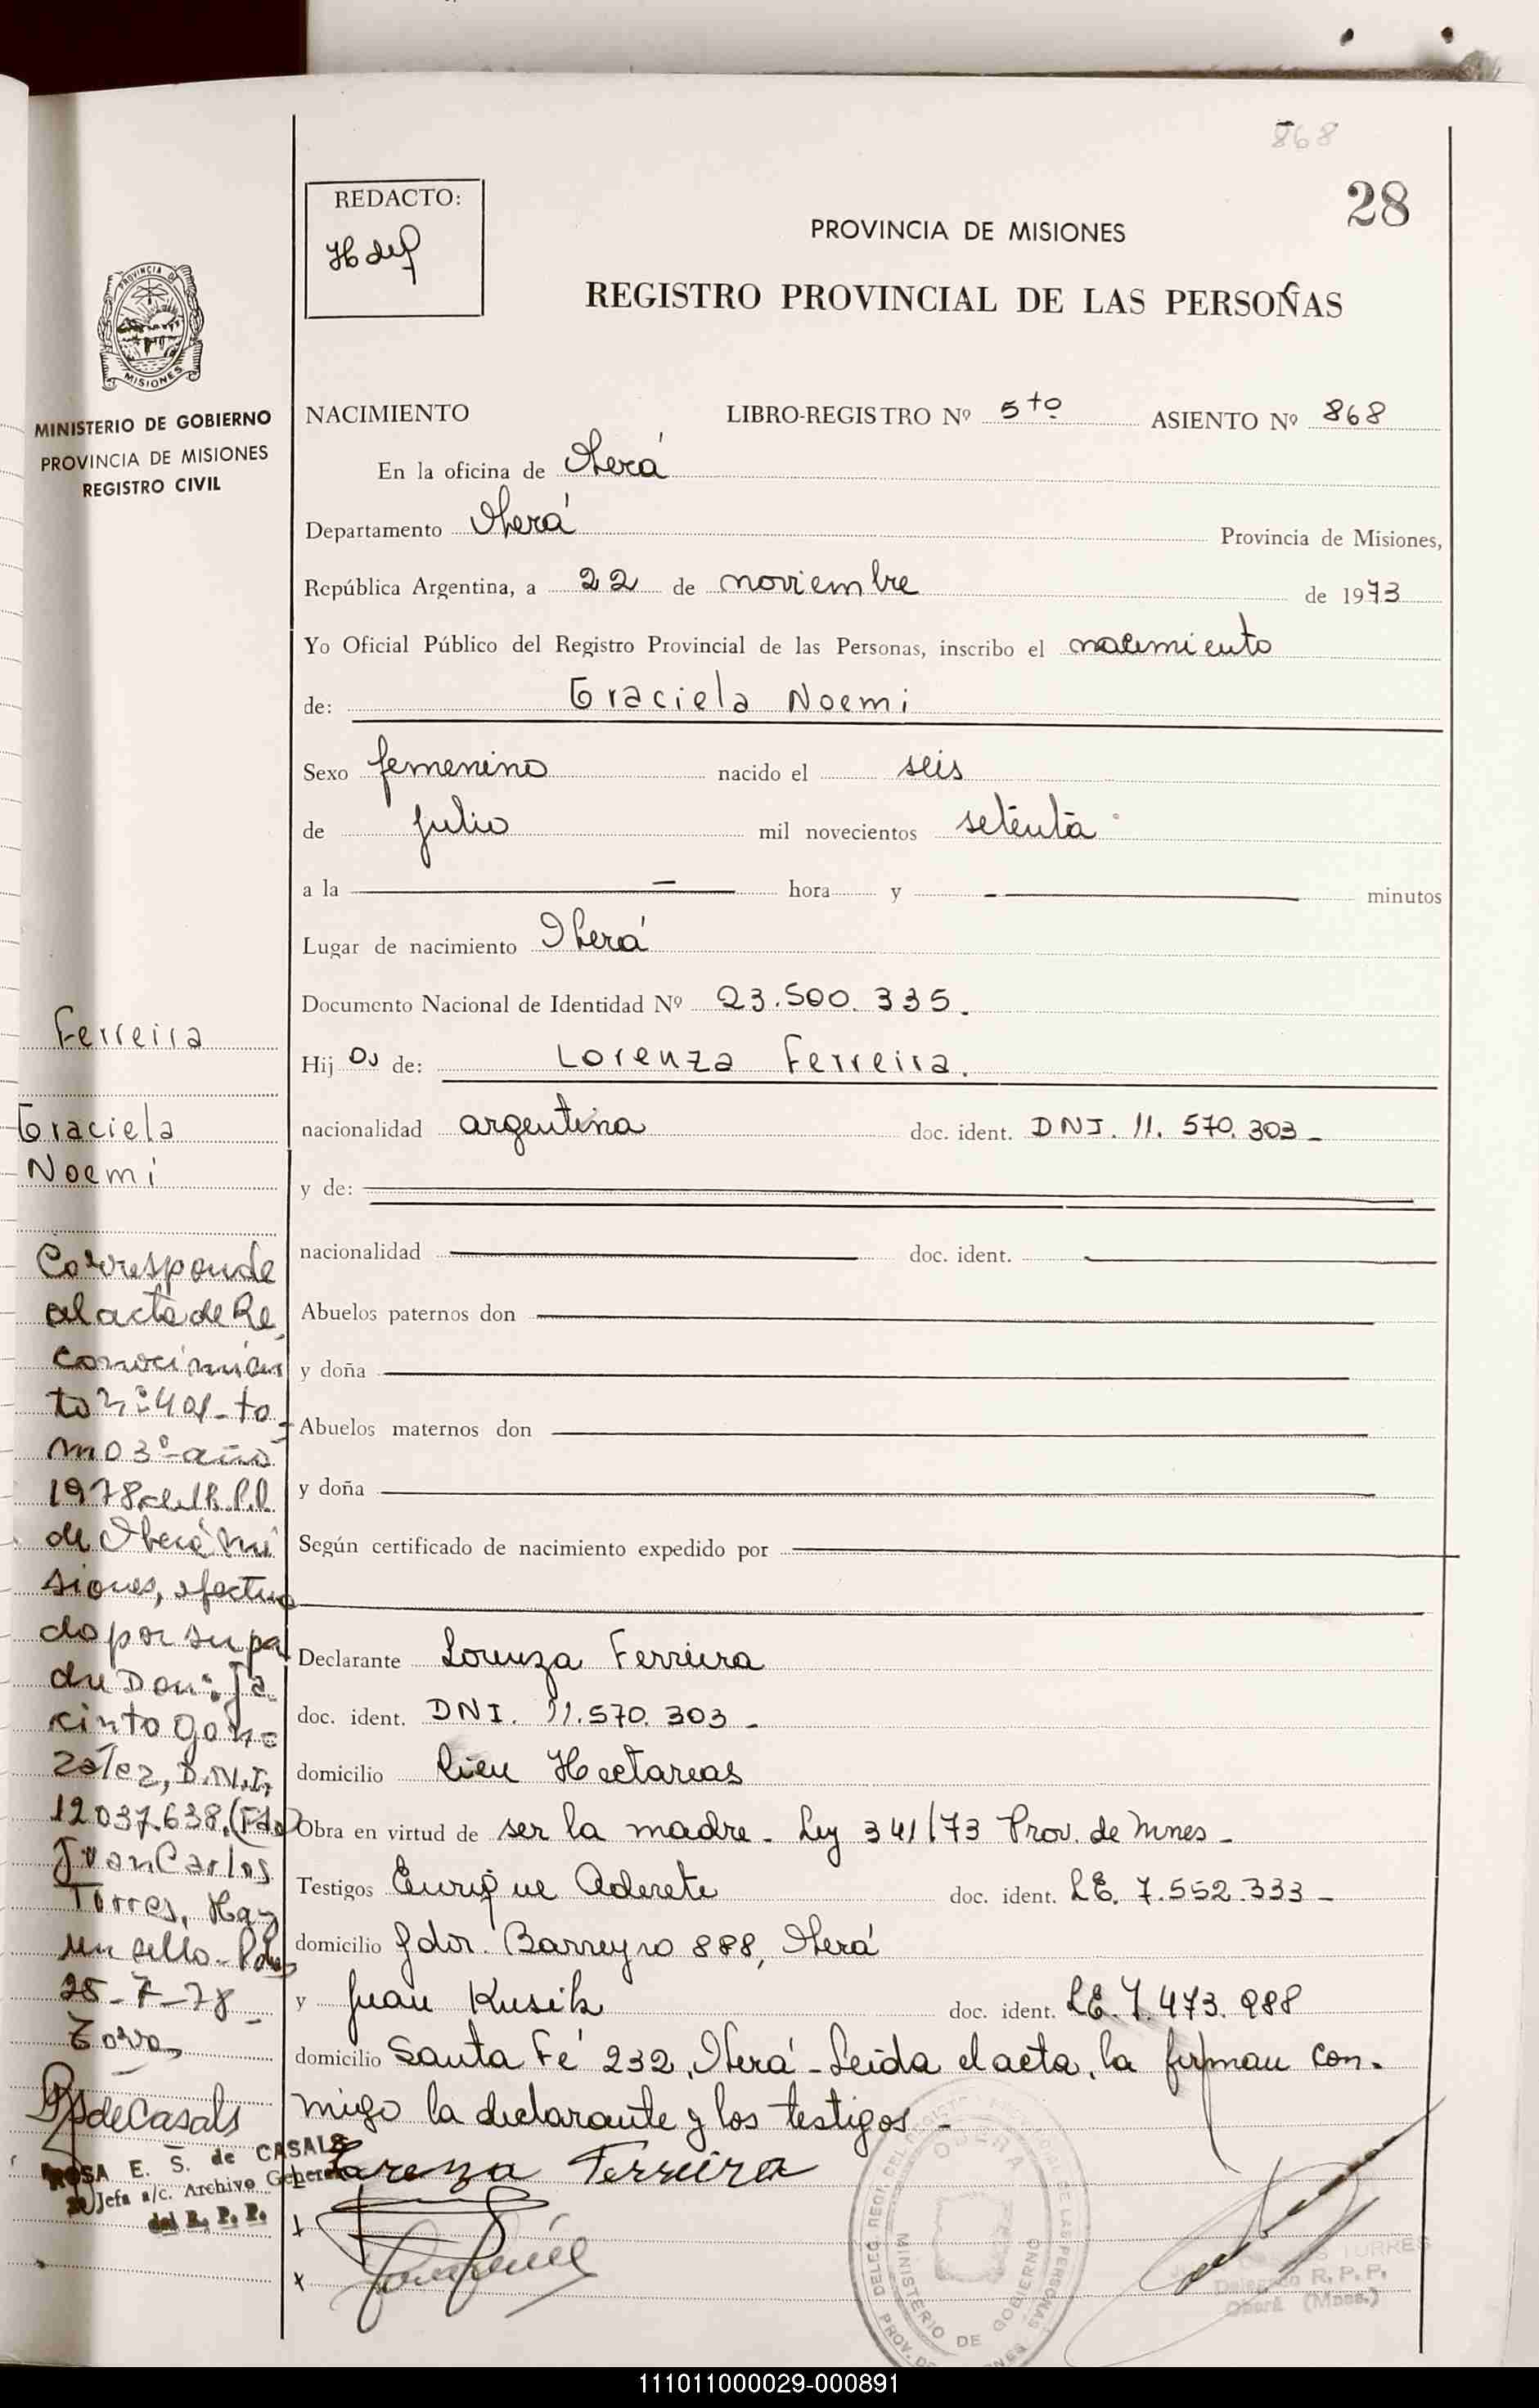 868
28
REDACTO:
PROVINCIA DE MISIONES
REGISTRO PROVINCIAL DE LAS PERSONAS
PROVINCIA DE
MISIONES
MINISTERIO DE GOBIERNO
PROVINCIA DE MISIONES
REGISTRO CIVIL
NACIMIENTO LIBRO-REGISTRO Nº 5to ASIENTO Nº 868
En la oficina de Oberá
Departamento Oberá Provincia de Misiones,
República Argentina, a 22 de noviembre de 1973
Yo Oficial Público del Registro Provincial de las Personas, inscribo el nacimiento
de: Graciela Noemi
Sexo femenino nacido el seis
de julio mil novecientos setenta
a la hora y minutos
Lugar de nacimiento Oberá
Documento Nacional de Identidad Nº 23.500.335.
Hij de: Lorenza Ferreira.
nacionalidad argentina doc. ident. DNI. 11.570.303-
y de:
nacionalidad doc. ident.
Abuelos paternos don
y doña
Abuelos maternos don
y doña
Según certificado de nacimiento expedido por
Declarante Lorenza Ferreira
doc. ident. DNI. 11.570.303-
domicilio Cien Hectareas
Obra en virtud de ser la madre. Ley 341/73 Prov. de Mnes-
Testigos Enrique Aderete doc. ident. LE. 7.552.333-
domicilio Gdor. Barreyro 888, Oberá
y Juan Kusik doc. ident. LE. 7.473.988
domicilio Santa Fé 232, Oberá-Leida el acta, la firman con-
migo la declarante y los testigos-
Lorenza Ferreira
Ferreira
Graciela
Noemi
Corresponde
al acta de Re
conocimien
to nº 401-to
mo 3º-año
1978 del R.P.P.
de Oberá Mi
siones, efectua
do por su pa
dre Don: Ja
cinto Gon=
zález, D.N.I.
12.037.638.(Fdo)
Juan Carlos
Torres, Hay
un sello-Pdas
25-7-78-
ROSA E. S. de CASALS
Jefa a/c. Archivo General
del R. P. P.
DELEG. REGI. DEL REGISTRO PROVINCIAL DE LAS PERSONAS
OBERA
MINISTERIO DE GOBIERNO
PROV. DE MISIONES
TORRES
Delegado R. P. P.
Oberá (Mnes.)
111011000029-000891